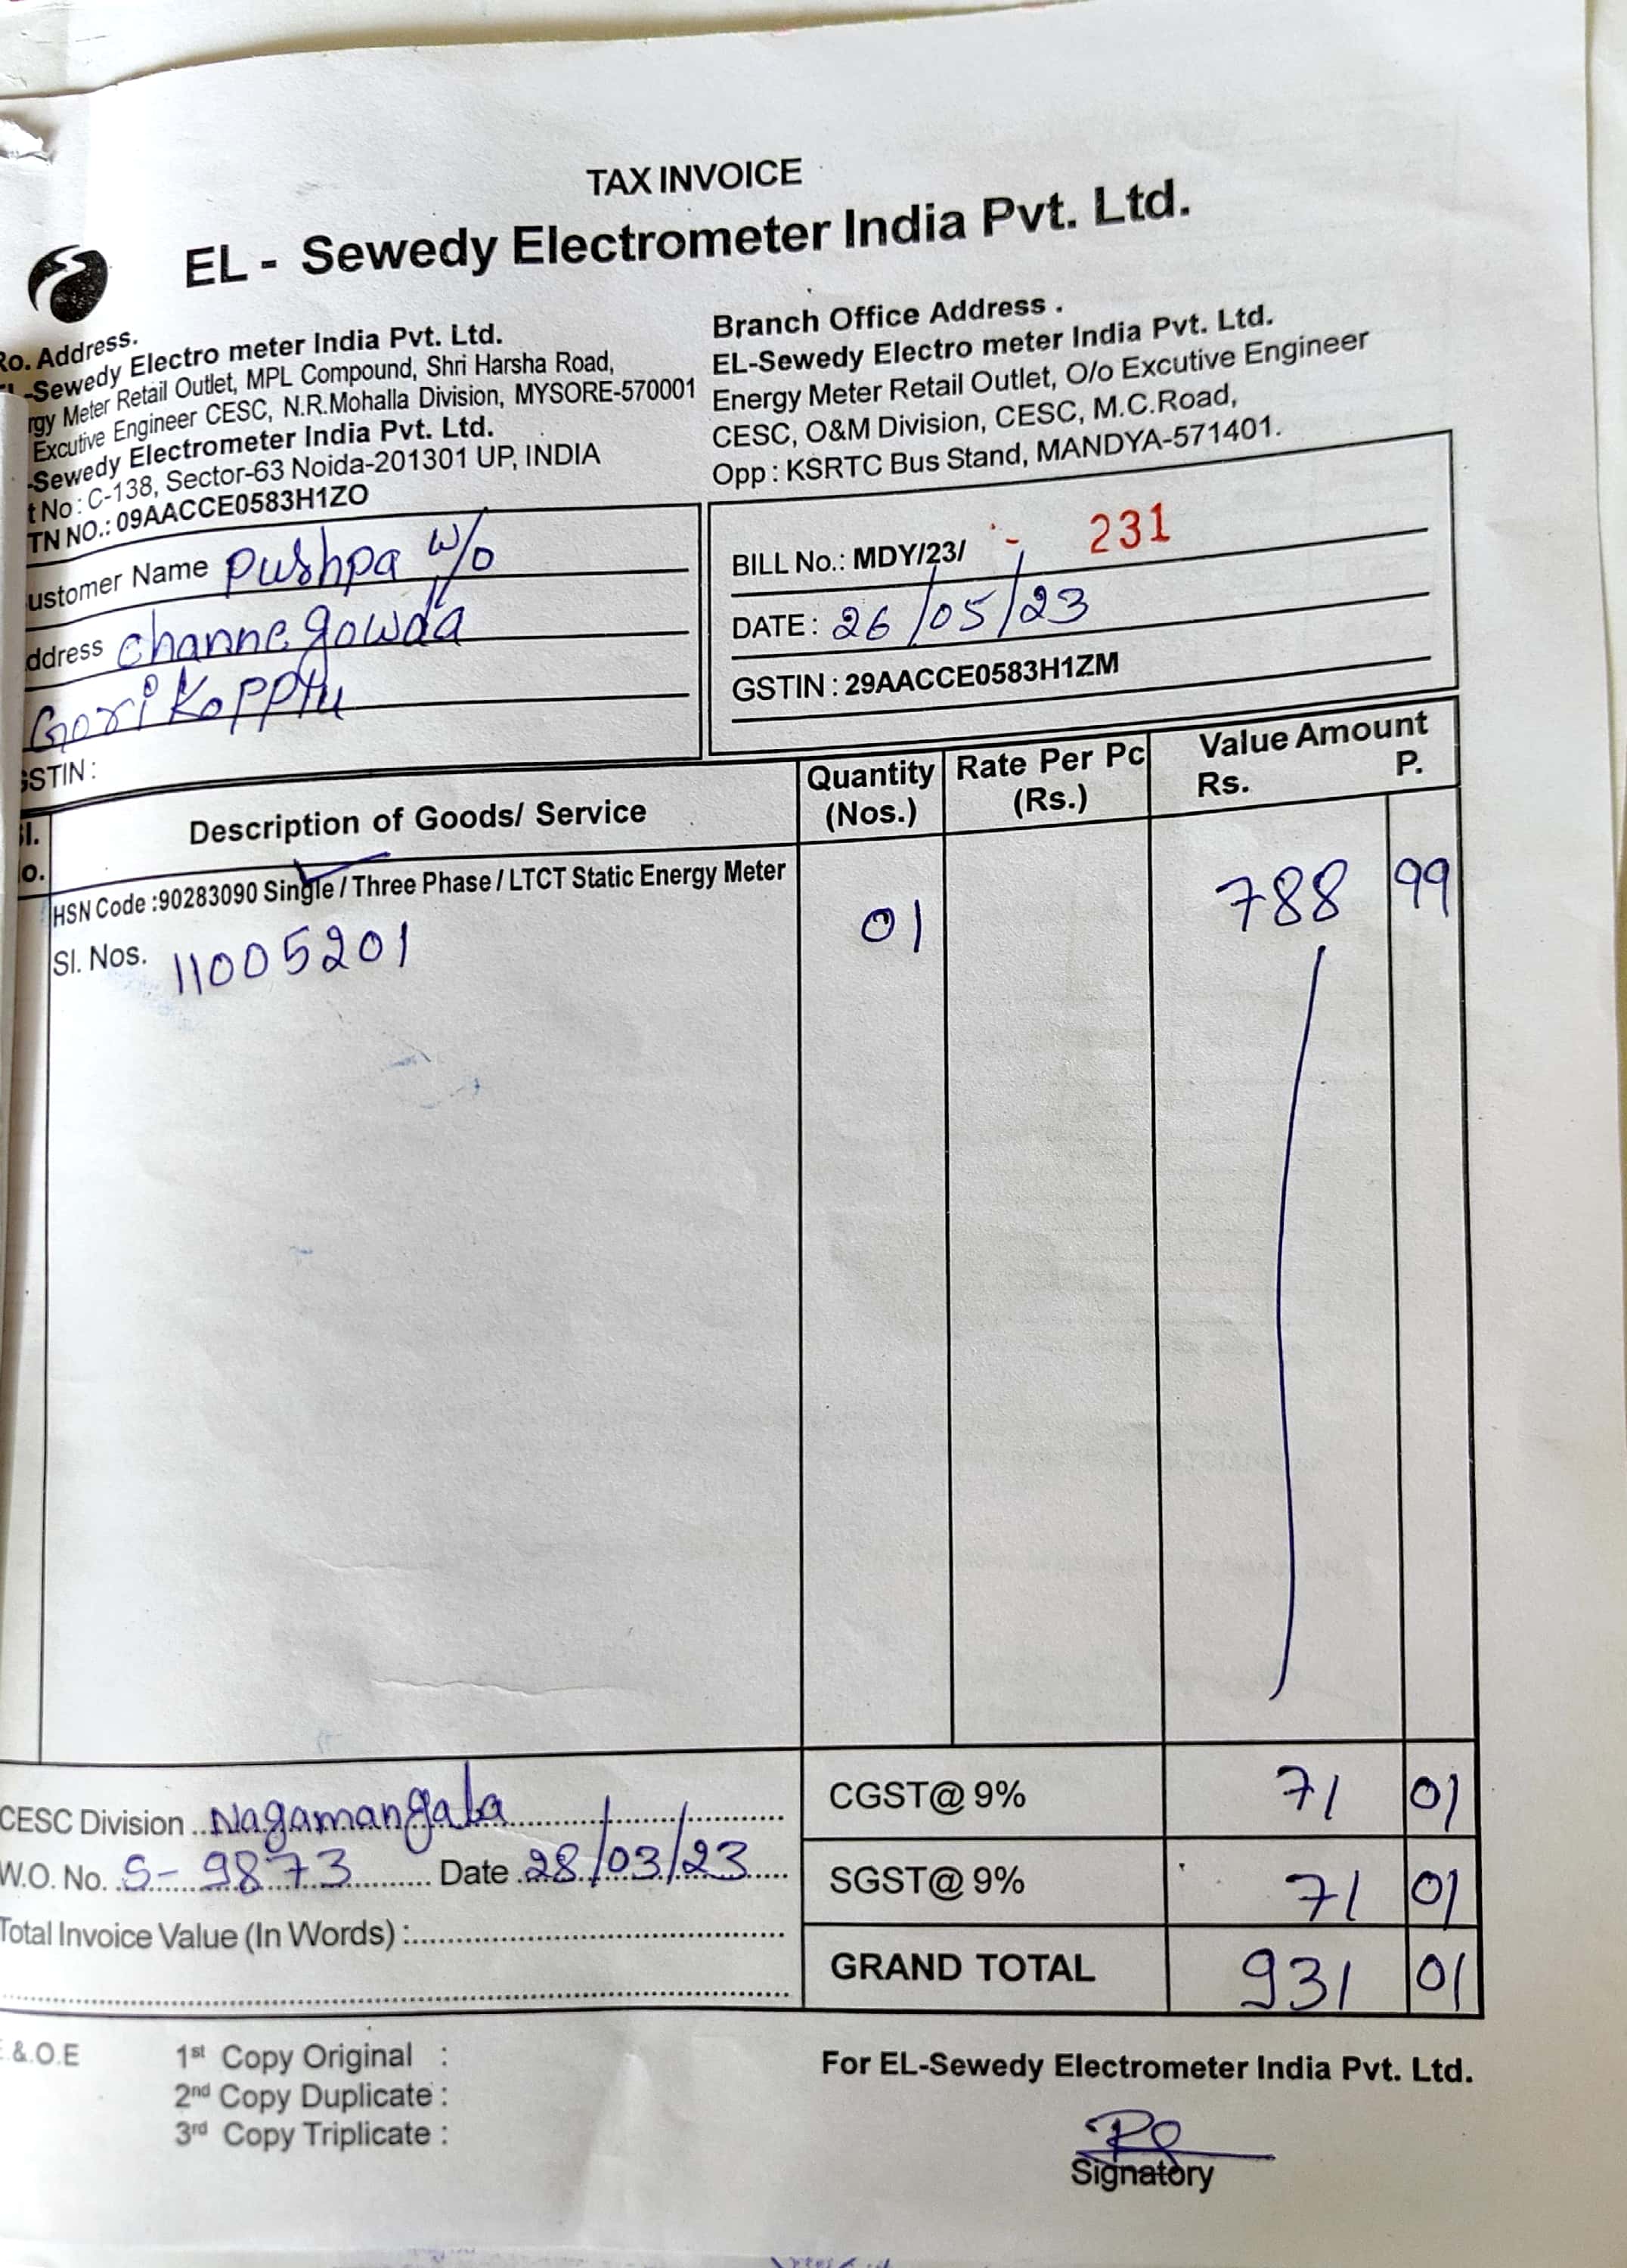 TAX INVOICE
EL - Sewedy Electrometer India Pvt. Ltd.
Ro. Address.
-Sewedy Electro meter India Pvt. Ltd.
rgy Meter Retail Outlet, MPL Compound, Shri Harsha Road,
Excutive Engineer CESC, N.R.Mohalla Division, MYSORE-570001
-Sewedy Electrometer India Pvt. Ltd.
t No : C-138, Sector-63 Noida-201301 UP, INDIA
TN NO.: 09AACCE0583H1ZO
Branch Office Address .
EL-Sewedy Electro meter India Pvt. Ltd.
Energy Meter Retail Outlet, O/o Excutive Engineer
CESC, O&M Division, CESC, M.C.Road,
Opp : KSRTC Bus Stand, MANDYA-571401.
ustomer Name pushpa w/o
ddress channegowda
Gorikopplu
GSTIN :
BILL No.: MDY/23/ - 231
DATE : 26/05/23
GSTIN : 29AACCE0583H1ZM
Sl. No. Description of Goods/ Service Quantity (Nos.) Rate Per Pc (Rs.) Value Amount Rs. P.
HSN Code :90283090 Single / Three Phase / LTCT Static Energy Meter
Sl. Nos. 11005201 01 788 99
CESC Division Nagamangala
W.O. No. S- 9873 Date 28/03/23
Total Invoice Value (In Words) :
CGST@ 9% 71 01
SGST@ 9% 71 01
GRAND TOTAL 931 01
.&.O.E
1st Copy Original :
2nd Copy Duplicate :
3rd Copy Triplicate :
For EL-Sewedy Electrometer India Pvt. Ltd.
Signatory